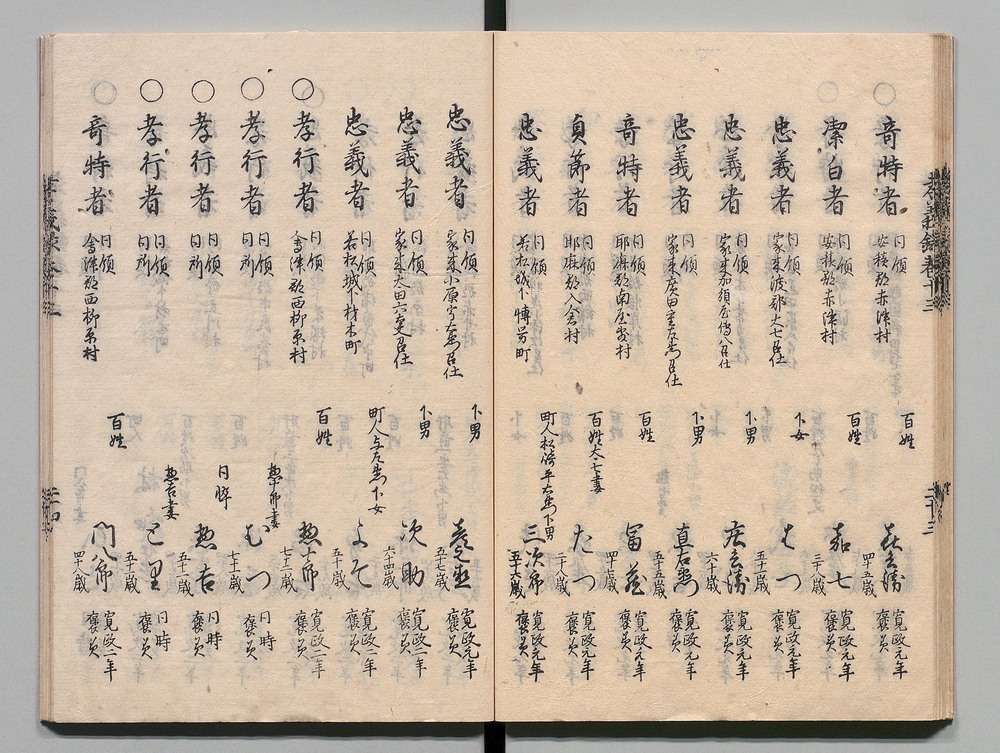 孝義録巻十三
○奇特者
同領
安積郡赤津村
百姓
四十五歳
寛政元年
褒美
潔白者
同領
安積郡赤津村
百姓
嘉七
三十八歳
寛政元年
褒美
忠義者
同領
家来波部大七召仕
下女
はつ
五十一歳
寛政元年
褒美
忠義者
同領
家来加須屋傳八召仕
下男
六十歳
寛政元年
褒美
忠義者
同領
家来廣田重左衛門召仕
下男
真右衛門
五十五歳
寛政元年
褒美
奇特者
同領
耶麻郡南屋敷村
百姓
富蔵
四十八歳
寛政元年
褒美
貞節者
同領
耶麻郡入倉村
百姓太七妻
たつ
二十八歳
寛政元年
褒美
忠義者
同領
若松城下博労町
町人松崎平右衛門下男
三次郎
五十六歳
寛政元年
褒美
忠義者
同領
下男
五十七歳
寛政元年
褒美
忠義者
同領
家来太田六太夫召仕
下男
次助
六十四歳
寛政二年
褒美
忠義者
同領
若松城下材木町
町人与左衛門下女
よそ
五十歳
寛政二年
褒美
○孝行者
同領
會津郡西柳原村
百姓
惣十郎
七十二歳
寛政二年
褒美
○孝行者
同領
同所
惣十郎妻
むつ
七十一歳
同時
褒美
○孝行者
同領
同所
同伜
惣吉
五十二歳
同時
褒美
○孝行者
同領
同所
惣吉妻
と里
五十一歳
同時
褒美
奇特者
同領
會津郡西柳原村
百姓
門八郎
四十八歳
寛政二年
褒美